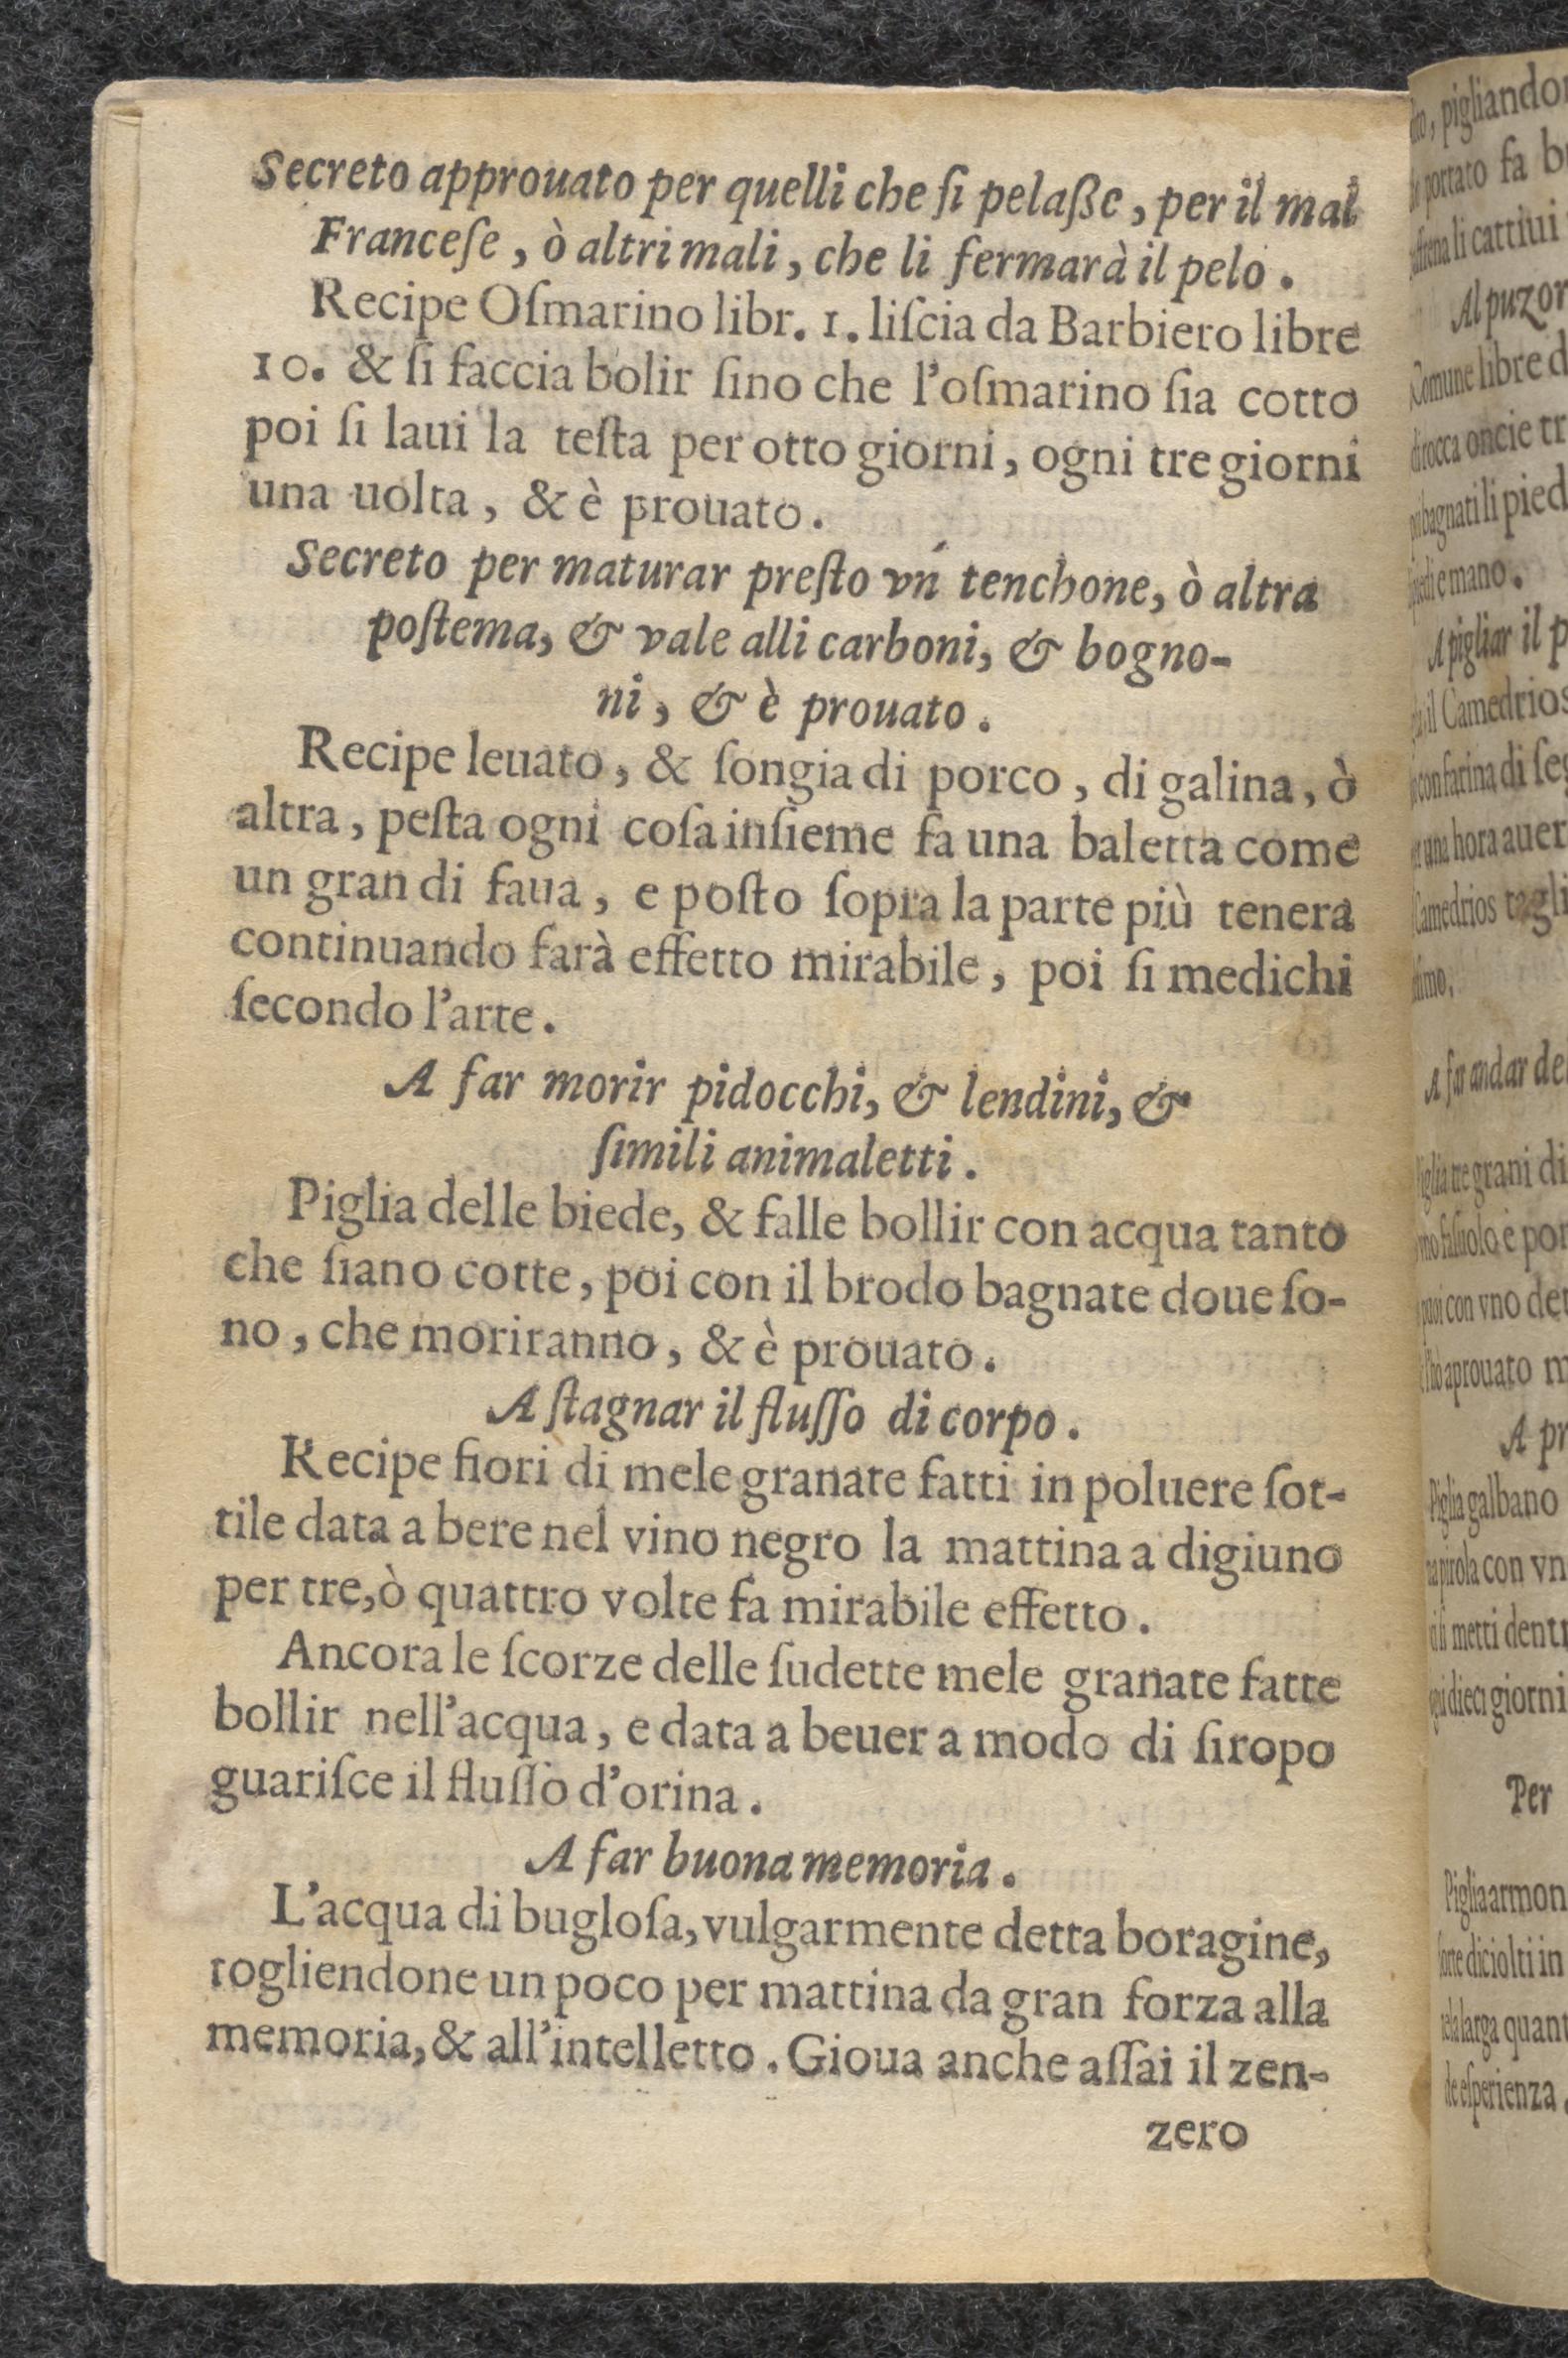 Secreto approuato per quelli che ſi pelaße, per il mal
Franceſe, ò altri mali, che li fermarà il pelo.
Recipe Oſmarino libr. 1. liſcia da Barbiero libre
10. & ſi faccia bolir ſino che l'oſmarino ſia cotto
poi ſi laui la teſta per otto giorni, ogni tre giorni
una uolta, & è prouato.
Secreto per maturar preſto vn tenchone, ò altra
poſtema, & vale alli carboni, & bogno-
ni, & è prouato.
Recipe leuato, & ſongia di porco, di galina, ò
altra, peſta ogni coſa inſieme fa una baletta come
un gran di faua, e poſto ſopra la parte più tenera
continuando farà effetto mirabile, poi ſi medichi
ſecondo l'arte.
A far morir pidocchi, & lendini, &
ſimili animaletti.
Piglia delle biede, & falle bollir con acqua tanto
che ſiano cotte, poi con il brodo bagnate doue ſo-
no, che moriranno, & è prouato.
A ſtagnar il fluſſo di corpo.
Recipe fiori di mele granate fatti in poluere ſot-
tile data a bere nel vino negro la mattina a digiuno
per tre, ò quattro volte fa mirabile effetto.
Ancora le ſcorze delle ſudette mele granate fatte
bollir nell'acqua, e data a beuer a modo di ſiropo
guariſce il fluſſo d'orina.
A far buona memoria.
L'acqua di bugloſa, vulgarmente detta boragine,
togliendone un poco per mattina da gran forza alla
memoria, & all'intelletto. Gioua anche aſſai il zen-
zero
portato fa
li cattiui
Al
libre
rocca oncie
bagnati li
e mano.
A pigliar il
il Camedrios
con farina di
una hora
Camedrios
A far andar
tre grani di
con vno
aprouato
A
Piglia galbano
pirola con vn
ſi metti
dieci giorni
Per
Piglia
diciolti in
larga
eſperienza